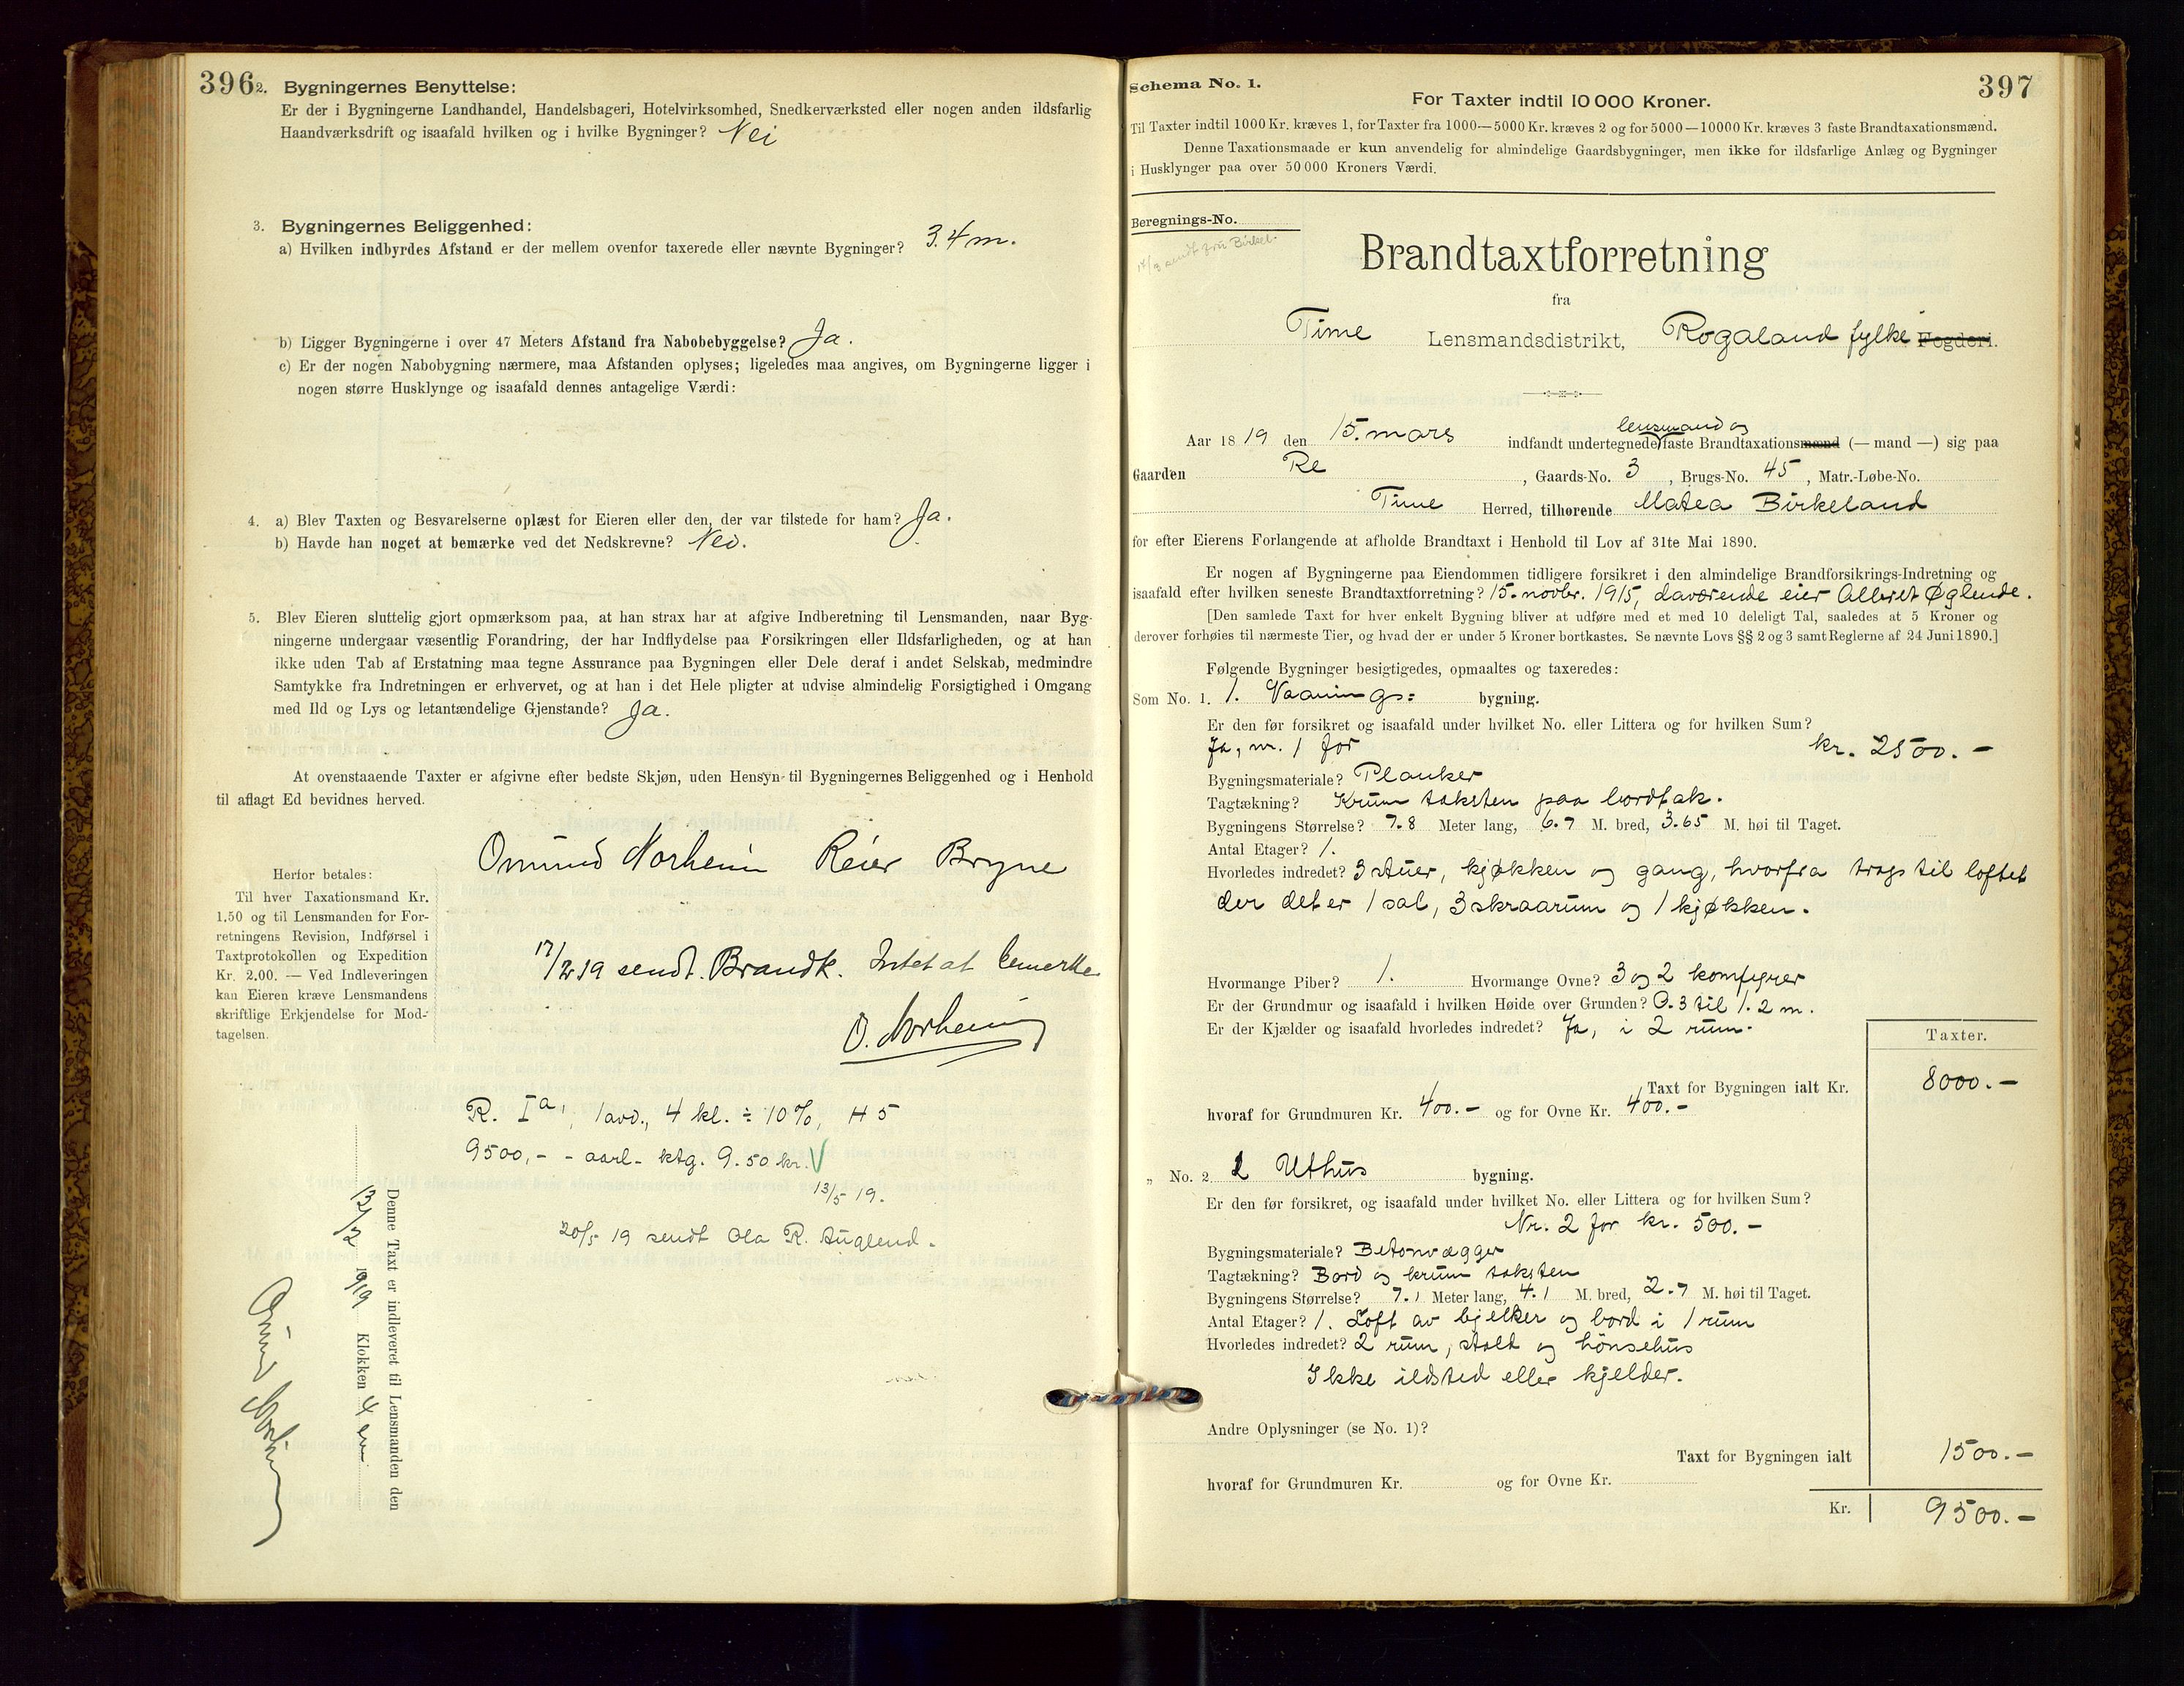 396
2. Bygningernes Benyttelse:
Er der i Bygningerne Landhandel, Handelsbageri, Hotelvirksomhed, Snedkerværksted eller nogen anden ildsfarlig
Haandværksdrift og isaafald hvilken og i hvilke Bygninger? Nei
3. Bygningernes Beliggenhed:
a) Hvilken indbyrdes Afstand er der mellem ovenfor taxerede eller nævnte Bygninger? 3.4 m.
b) Ligger Bygningerne i over 47 Meters Afstand fra Nabobebyggelse? Ja.
c) Er der nogen Nabobygning nærmere, maa Afstanden oplyses; ligeledes maa angives, om Bygningerne ligger i
nogen større Husklynge og isaafald dennes antagelige Værdi:
4. a) Blev Taxten og Besvarelserne oplæst for Eieren eller den, der var tilstede for ham? Ja.
b) Havde han noget at bemærke ved det Nedskrevne? Nei.
5. Blev Eieren sluttelig gjort opmærksom paa, at han strax har at afgive Indberetning til Lensmanden, naar Byg-
ningerne undergaar væsentlig Forandring, der har Indflydelse paa Forsikringen eller Ildsfarligheden, og at han
ikke uden Tab af Erstatning maa tegne Assurance paa Bygningen eller Dele deraf i andet Selskab, medmindre
Samtykke fra Indretningen er erhvervet, og at han i det Hele pligter at udvise almindelig Forsigtighed i Omgang
med Ild og Lys og letantændelige Gjenstande? Ja.
At ovenstaaende Taxter er afgivne efter bedste Skjøn, uden Hensyn til Bygningernes Beliggenhed og i Henhold
til aflagt Ed bevidnes herved.
Omund Norheim Reier Bryne
Herfor betales:
Til hver Taxationsmand Kr.
1,50 og til Lensmanden for For-
retningens Revision, Indførsel i
Taxtprotokollen og Expedition
Kr. 2,00. — Ved Indleveringen
kan Eieren kræve Lensmandens
skriftlige Erkjendelse for Mod-
tagelsen.
17/2 19 sendt Brandk. Intet at bemerke
O. Norheim
R. Ia, 1 avd., 4 kl. ÷ 10%, H 5
9500,- - aarl. ktg. 9.50 kr. V
13/5 19.
20/5 19 sendt Ola R.
Denne Taxt er indleveret til Lensmanden den
13/2 1919 Klokken 4 em
Omund Norheim
397
Schema No. 1.
For Taxter indtil 10 000 Kroner.
Til Taxter indtil 1000 Kr. kræves 1, for Taxter fra 1000—5000 Kr. kræves 2 og for 5000—10000 Kr. kræves 3 faste Brandtaxationsmænd.
Denne Taxationsmaade er kun anvendelig for almindelige Gaardsbygninger, men ikke for ildsfarlige Anlæg og Bygninger
i Husklynger paa over 50 000 Kroners Værdi.
Beregnings-No.
sendt fru Birkel.
Brandtaxtforretning
fra
Time Lensmandsdistrikt, Rogaland fylke Fogderi.
lensmand og
Aar 18 19 den 15. mars indfandt undertegnede faste Brandtaxationsmænd (— mand —) sig paa
Gaarden Re, Gaards-No. 3, Brugs-No. 45, Matr.-Løbe-No.
Time Herred, tilhørende Matea Birkeland
for efter Eierens Forlangende at afholde Brandtaxt i Henhold til Lov af 31te Mai 1890.
Er nogen af Bygningerne paa Eiendommen tidligere forsikret i den almindelige Brandforsikrings-Indretning og
isaafald efter hvilken seneste Brandtaxtforretning? 15. novbr. 1915, daværende eier Albret Øglende.
[Den samlede Taxt for hver enkelt Bygning bliver at udføre med et med 10 deleligt Tal, saaledes at 5 Kroner og
derover forhøies til nærmeste Tier, og hvad der er under 5 Kroner bortkastes. Se nævnte Lovs §§ 2 og 3 samt Reglerne af 24 Juni 1890.]
Følgende Bygninger besigtigedes, opmaaltes og taxeredes:
Som No. 1. 1. Vaanings= bygning.
Er den før forsikret og isaafald under hvilket No. eller Littera og for hvilken Sum?
Ja, nr. 1 for kr. 2500.-
Bygningsmateriale? Planker
Tagtækning? Krum taksten paa bordtak.
Bygningens Størrelse? 7.8 Meter lang, 6.7 M. bred, 3.65 M. høi til Taget.
Antal Etager? 1.
Hvorledes indredet? 3 stuer, kjøkken og gang, hvorfra trap til loftet
der det er 1 sal, 3 skraarum og 1 kjøkken.
Hvormange Piber? 1. Hvormange Ovne? 3 og 2 komfyrer
Er der Grundmur og isaafald i hvilken Høide over Grunden? 0.3 til 1.2 m.
Er der Kjælder og isaafald hvorledes indredet? Ja, i 2 rum.
Taxter.
Taxt for Bygningen ialt Kr. 8000.-
hvoraf for Grundmuren Kr. 400.- og for Ovne Kr. 400.-
„ No. 2 2 Uthus bygning.
Er den før forsikret, og isaafald under hvilket No. eller Littera og for hvilken Sum?
Nr. 2 for kr. 500.-
Bygningsmateriale? Betonvægger
Tagtækning? Bord og krum taksten
Bygningens Størrelse? 7.1 Meter lang, 4.1 M. bred, 2.7 M. høi til Taget.
Antal Etager? 1. Loft av bjelker og bord i 1 rum
Hvorledes indredet? 2 rum, stald og hönsehus
Ikke ildsted eller kjelder.
Andre Oplysninger (se No. 1)?
Taxt for Bygningen ialt 1500.-
hvoraf for Grundmuren Kr. og for Ovne Kr.
Kr. 9500.-